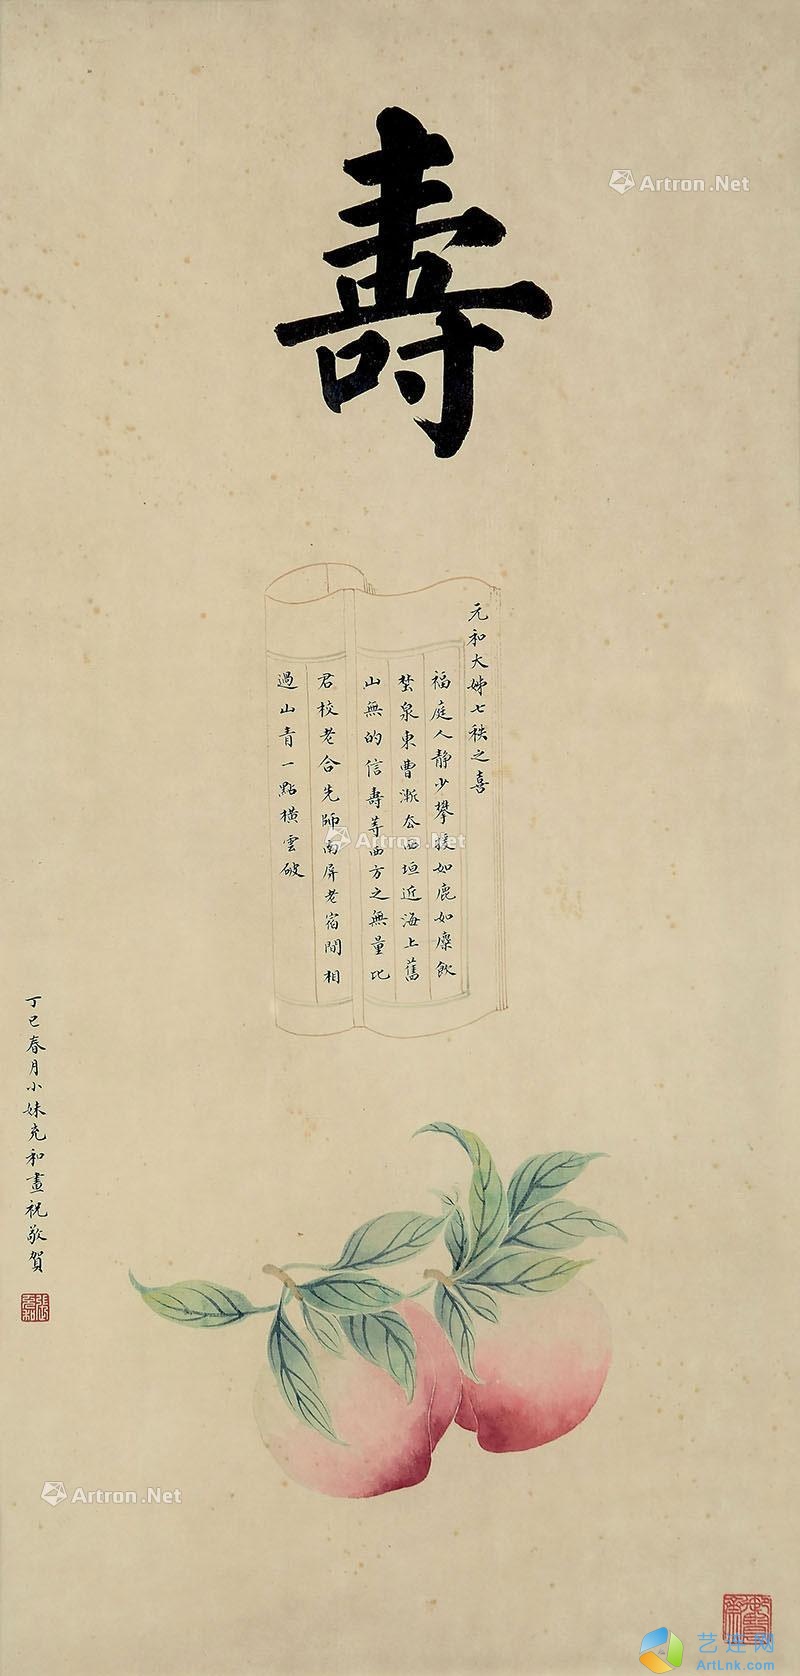 壽
元和大姊七秩之喜
福庭人靜少攀援如鹿如麋飲
泉東曹漸益西垣近海上舊
山無的信壽等西方之無量比
君校老合先師南屏老宿間相
過山青一點橫雲破
丁巳春月小妹充和畫祝敬賀
Artron.Net
Artron.Net
Artron.Net
艺连网
ArtLnk.com